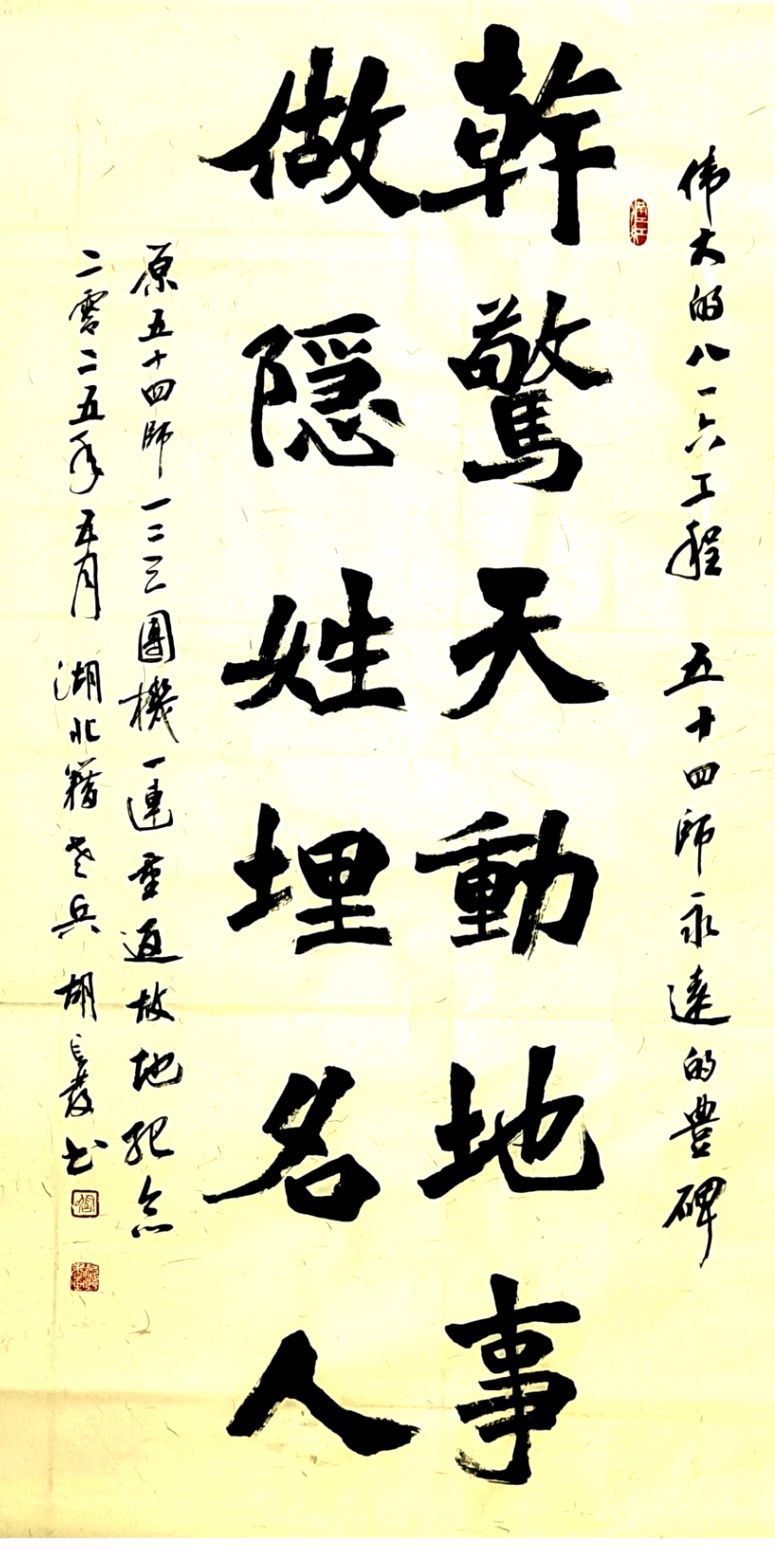 伟大的八一六工程 五十四師永遠的豊碑
幹驚天動地事
做隱姓埋名人
原五十四師一二三團機一連重返故地纪念
二零二五年五月 湖北籍老兵胡長發书